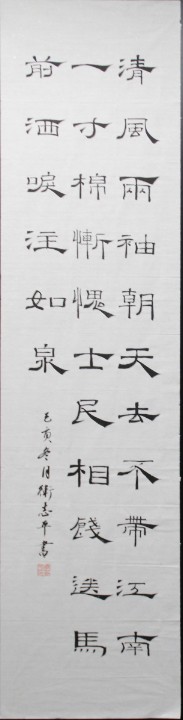 清風兩袖朝天去不帶江南
一寸棉慚愧士民相餞送馬
前洒淚注如泉
己亥冬月衛志平書